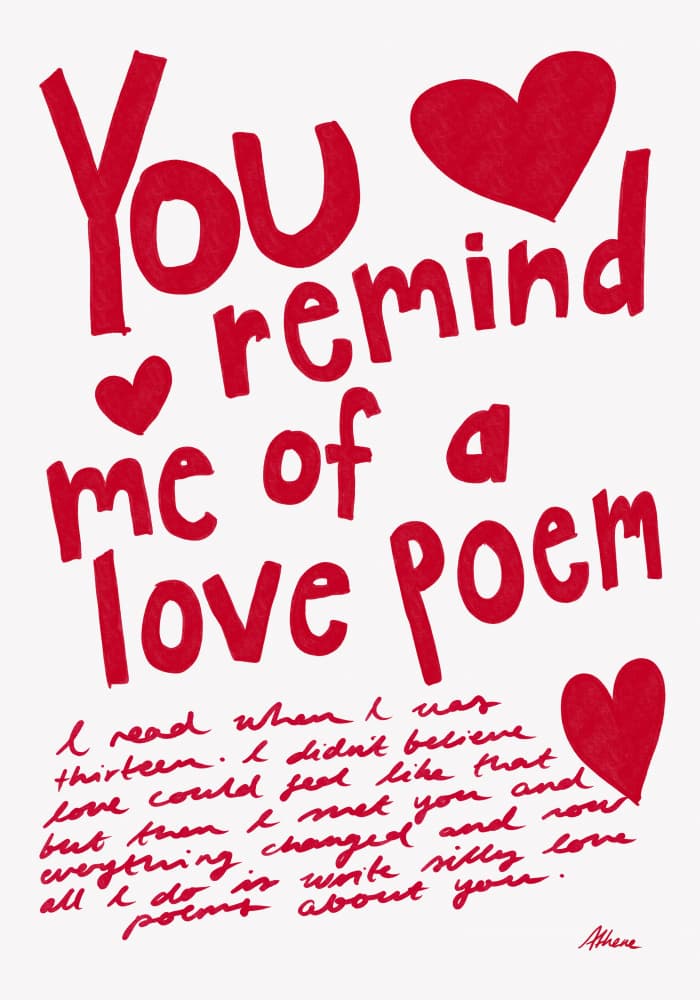 You
remind
me of a
love poem
I read when I was
thirteen. I didn't believe
love could feel like that
but then I met you and
everything changed and now
all I do is write silly love
poems about you.
Athene